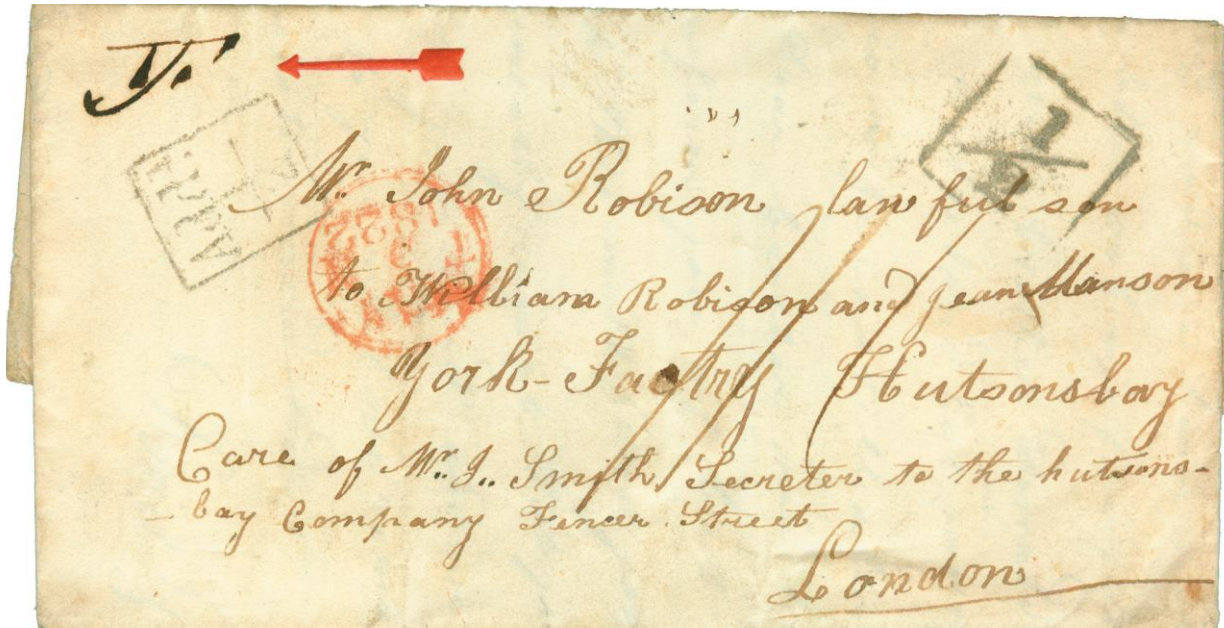 Y.
1/2
Mr. John Robison lawful son
to William Robison and Jean Manson
York-Factry Hutsonsbay
Care of Mr. J.. Smith Secreter to the hutsons-
-bay Company Fencer Street
London